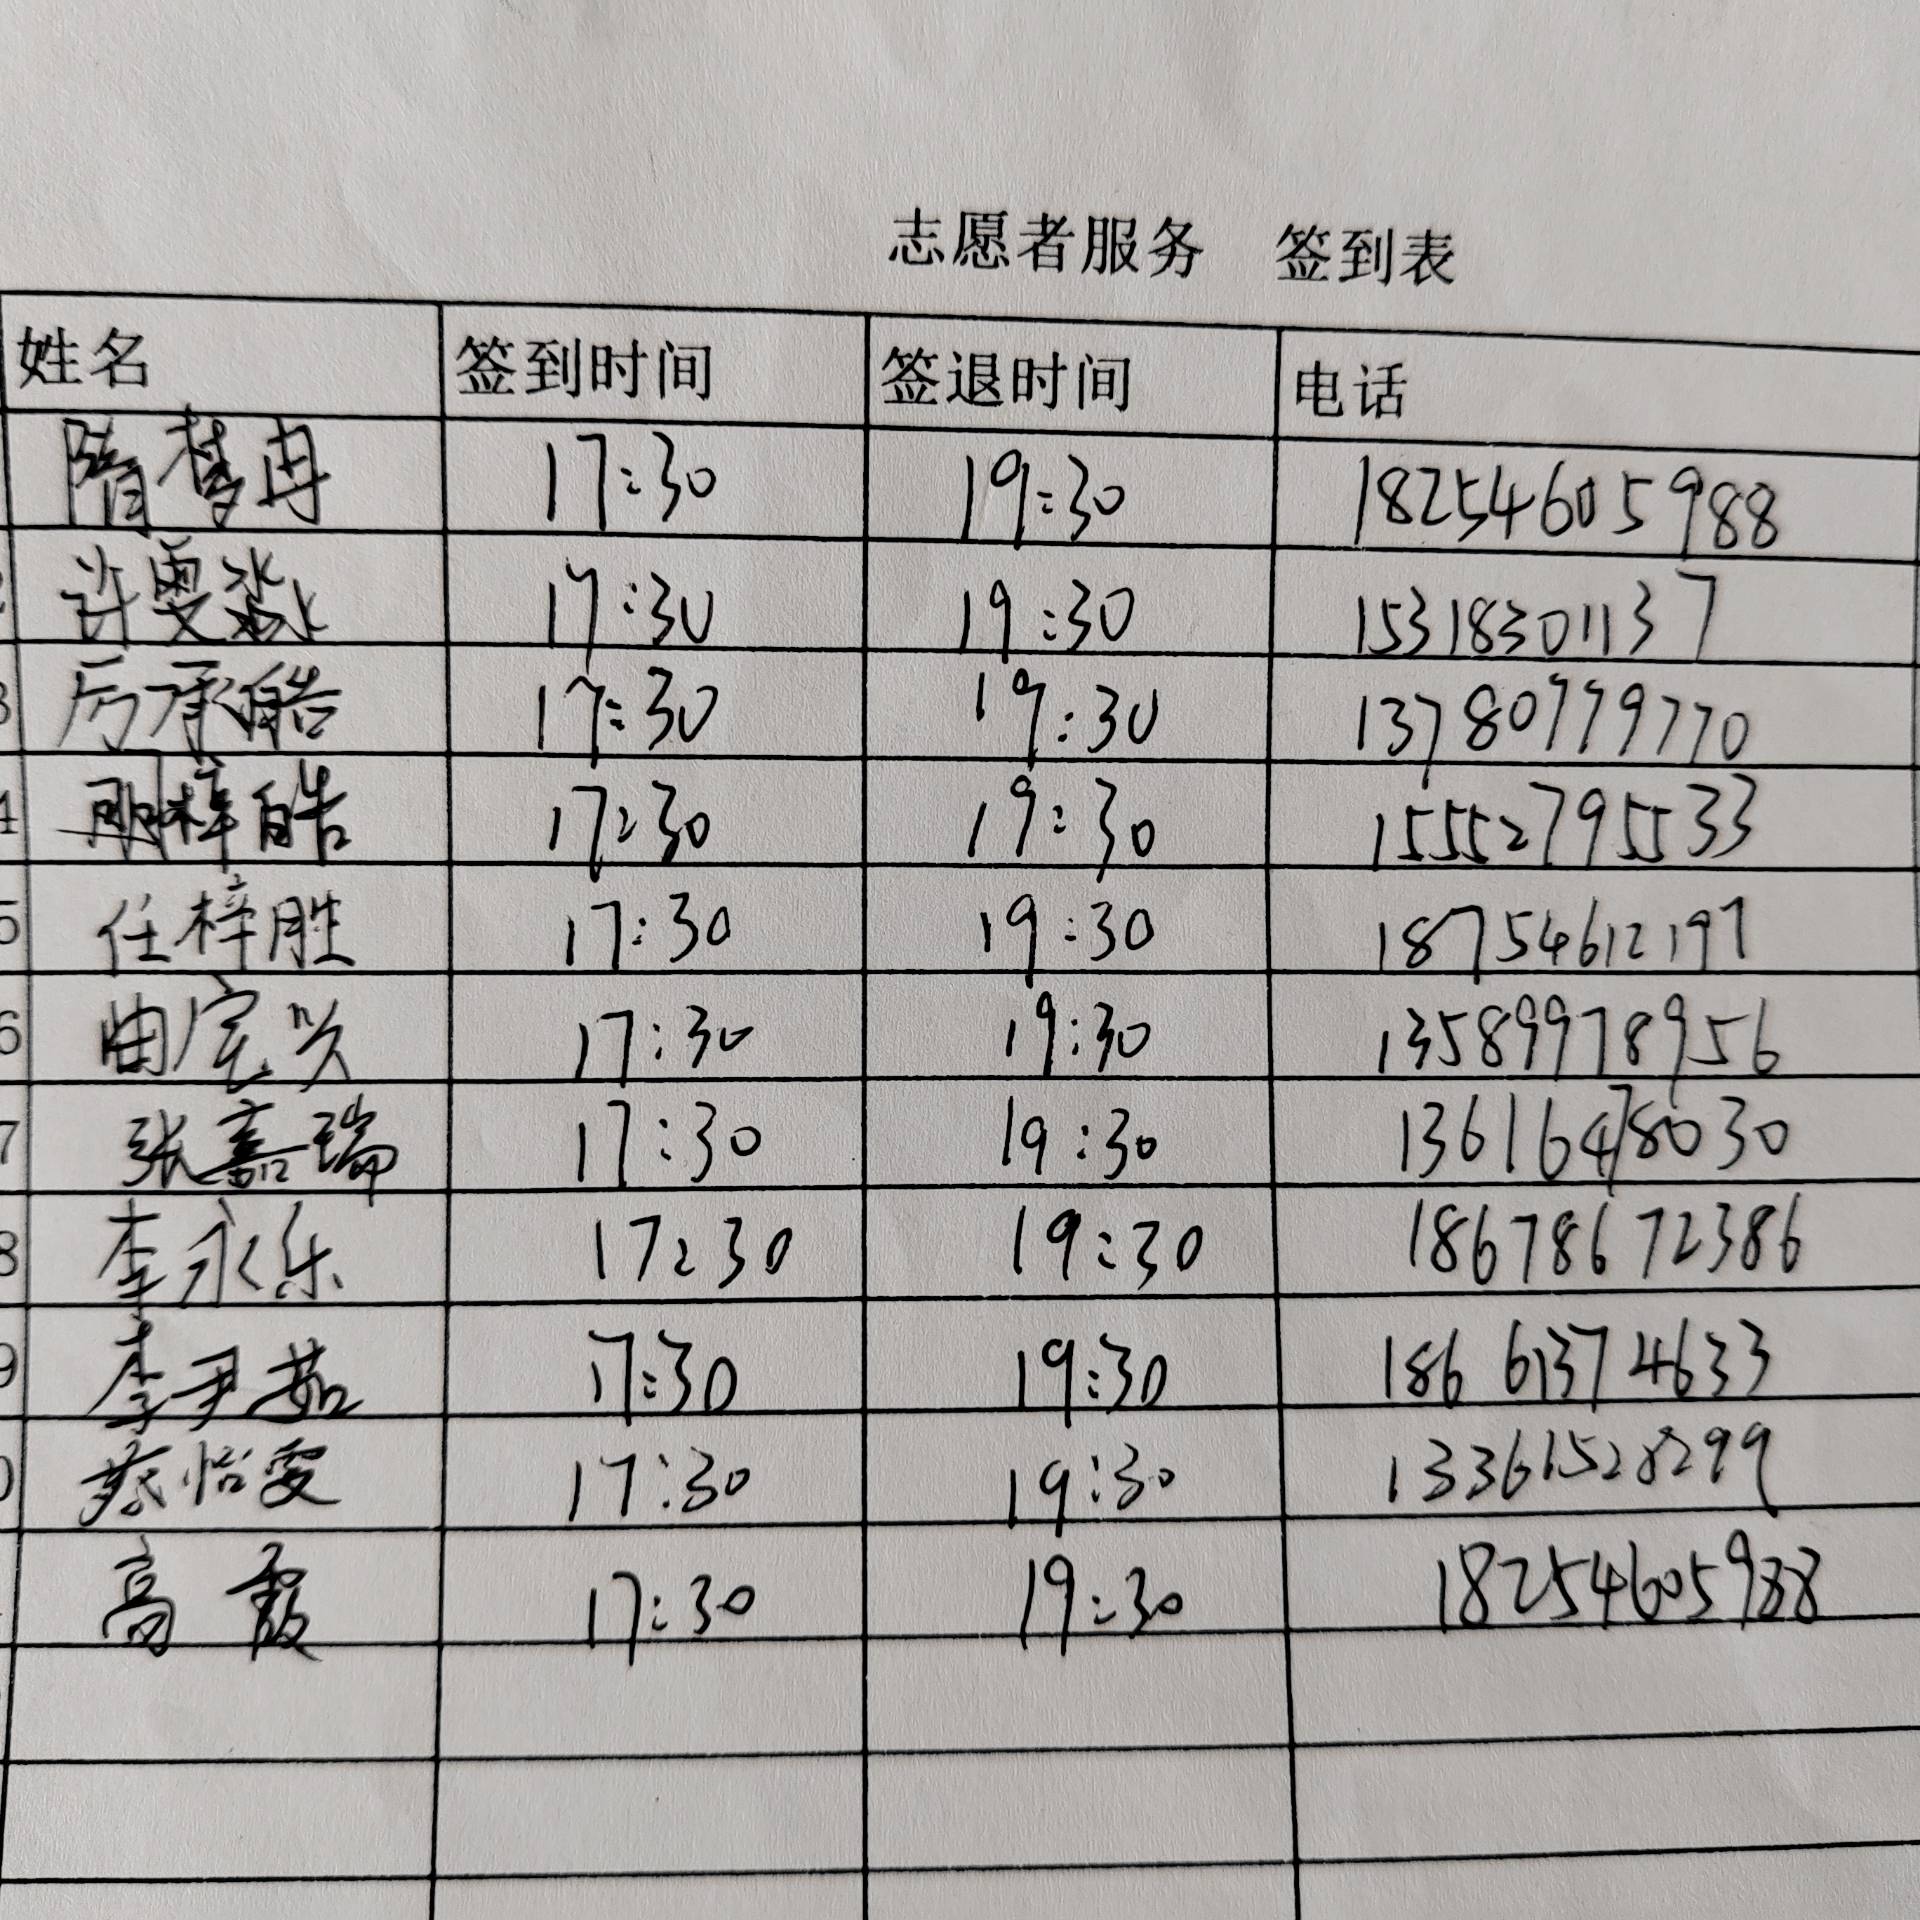 志愿者服务 签到表
姓名 签到时间 签退时间 电话
隋梦冉 17:30 19:30 18254605988
许雯淼 17:30 19:30 15318301137
3 厉承皓 17:30 19:30 13780779770
4 明梓皓 17:30 19:30 15552795533
5 任梓胜 17:30 19:30 18754612197
6 曲宏兴 17:30 19:30 13589978956
7 张嘉瑞 17:30 19:30 13616478030
8 李永乐 17:30 19:30 18678672386
9 李尹茹 17:30 19:30 18661374633
0 蔡怡雯 17:30 19:30 13361528299
高霞 17:30 19:30 18254605988